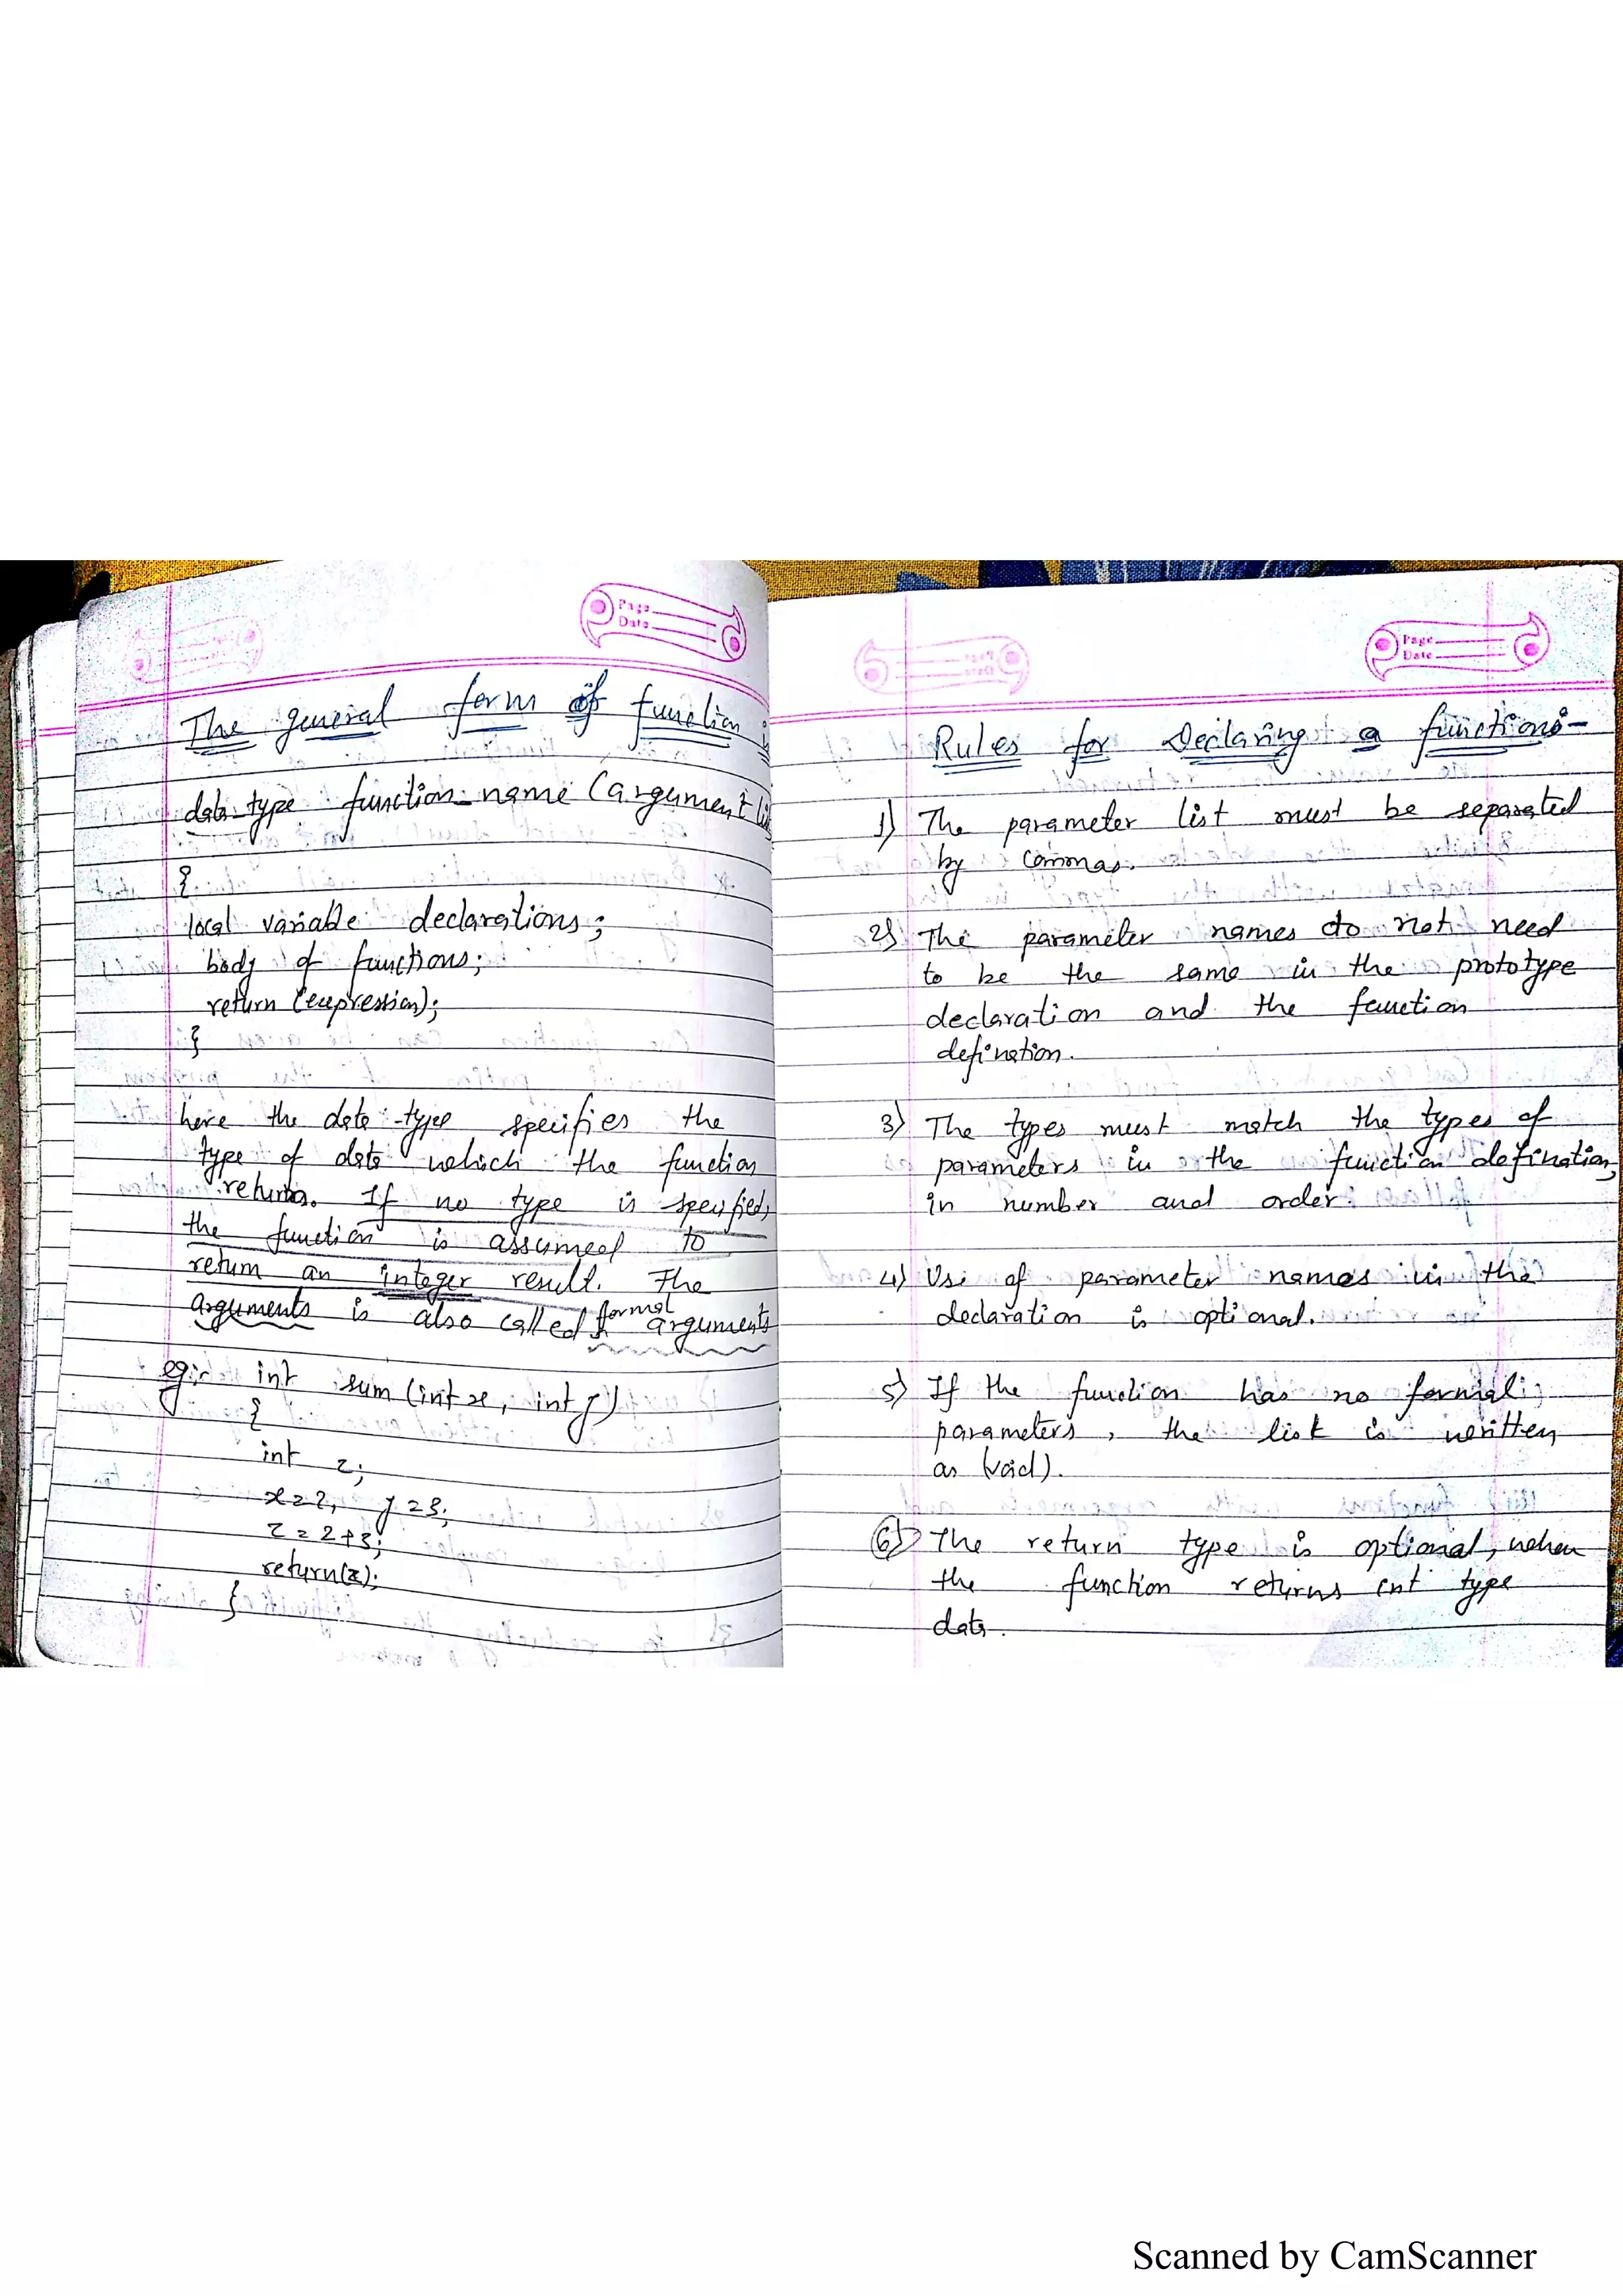 Page
Date
The general form of function
data type function-name (argument
{
local variable declarations;
body of functions;
return (expression);
}
here the data type specifies the
type of data which the function
returns. If no type is specified,
the function is assumed to
return an integer result. The
arguments is also called formal arguments
eg: int sum (int x, int y)
{
int z;
x=2, y=3;
z=2+3;
return(z);
}
Page
Date
Rules for Declaring a functions-
1) The parameter list must be separated
by commas.
2) The parameter names do not need
to be the same in the prototype
declaration and the function
defination.
3) The types must match the types of
parameters in the function defination,
in number and order.
4) Use of parameter names in the
declaration is optional.
5) If the function has no formal
parameters, the list is written
as (void).
6) The return type is optional, when
the function returns int type
data.
Scanned by CamScanner